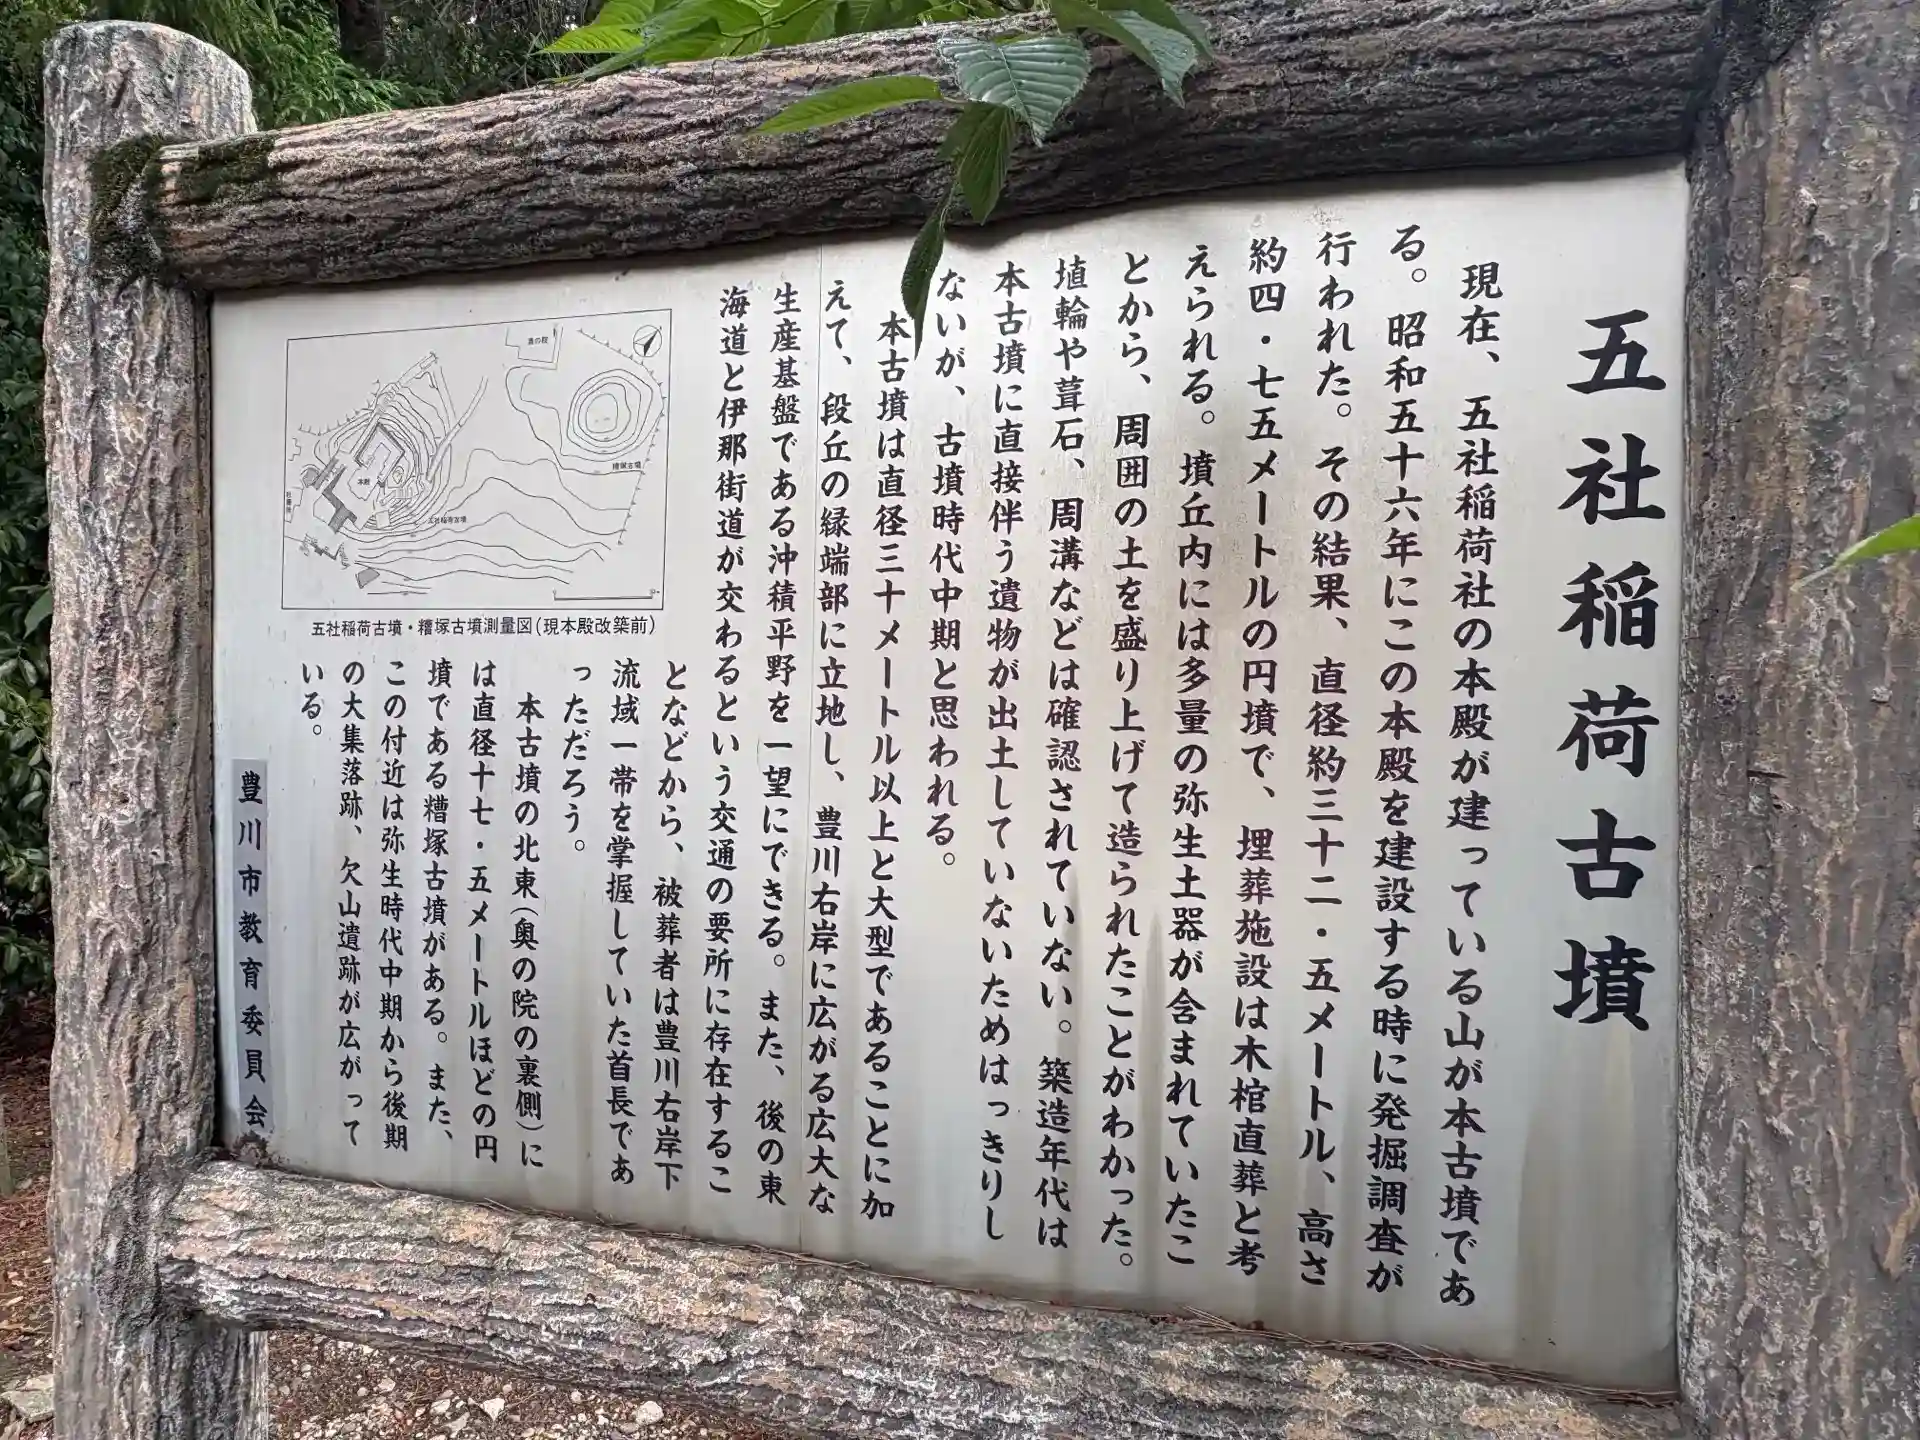 五社稲荷古墳
現在、五社稲荷社の本殿が建っている山が本古墳であ
る。昭和五十六年にこの本殿を建設する時に発掘調査が
行われた。その結果、直径約三十二・五メートル、高さ
約四・七五メートルの円墳で、埋葬施設は木棺直葬と考
えられる。墳丘内には多量の弥生土器が含まれていたこ
とから、周囲の土を盛り上げて造られたことがわかった。
埴輪や葺石、周溝などは確認されていない。築造年代は
本古墳に直接伴う遺物が出土していないためはっきりし
ないが、古墳時代中期と思われる。
本古墳は直径三十メートル以上と大型であることに加
えて、段丘の縁端部に立地し、豊川右岸に広がる広大な
生産基盤である沖積平野を一望にできる。また、後の東
海道と伊那街道が交わるという交通の要所に存在するこ
となどから、被葬者は豊川右岸下
流域一帯を掌握していた首長であ
っただろう。
本古墳の北東(奥の院の裏側)に
は直径十七・五メートルほどの円
墳である糟塚古墳がある。また、
この付近は弥生時代中期から後期
の大集落跡、欠山遺跡が広がって
いる。
豊川市教育委員会
奥の院
糟塚古墳
本殿
五社稲荷古墳
五社稲荷古墳・糟塚古墳測量図(現本殿改築前)